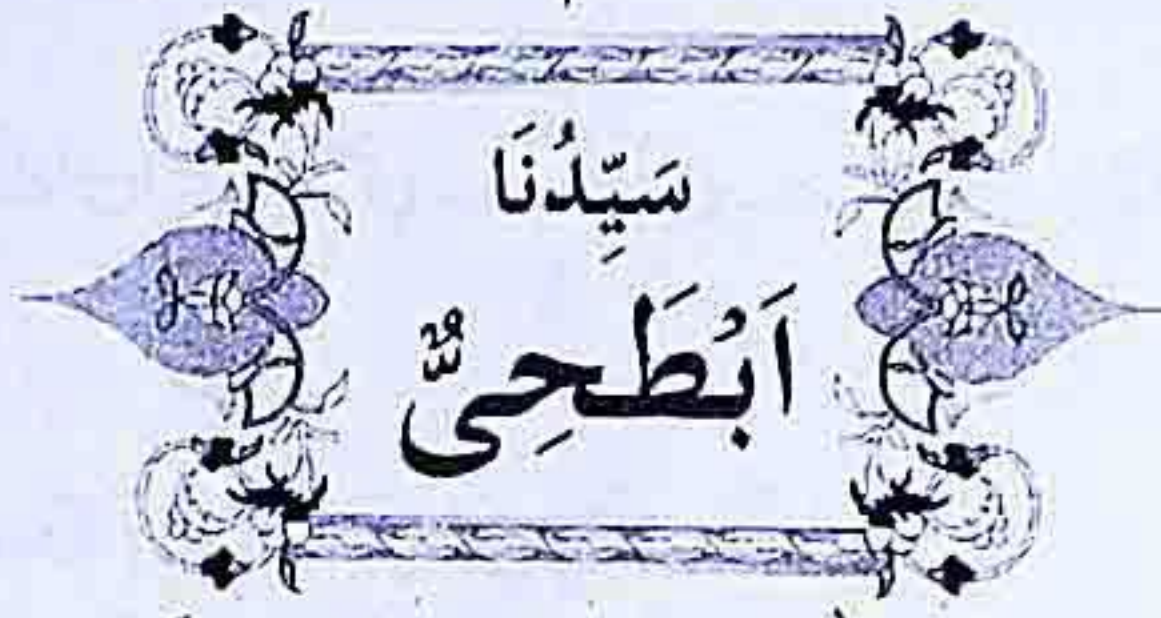 سَیِّدُنَا
اَبْطَحِیٌّ